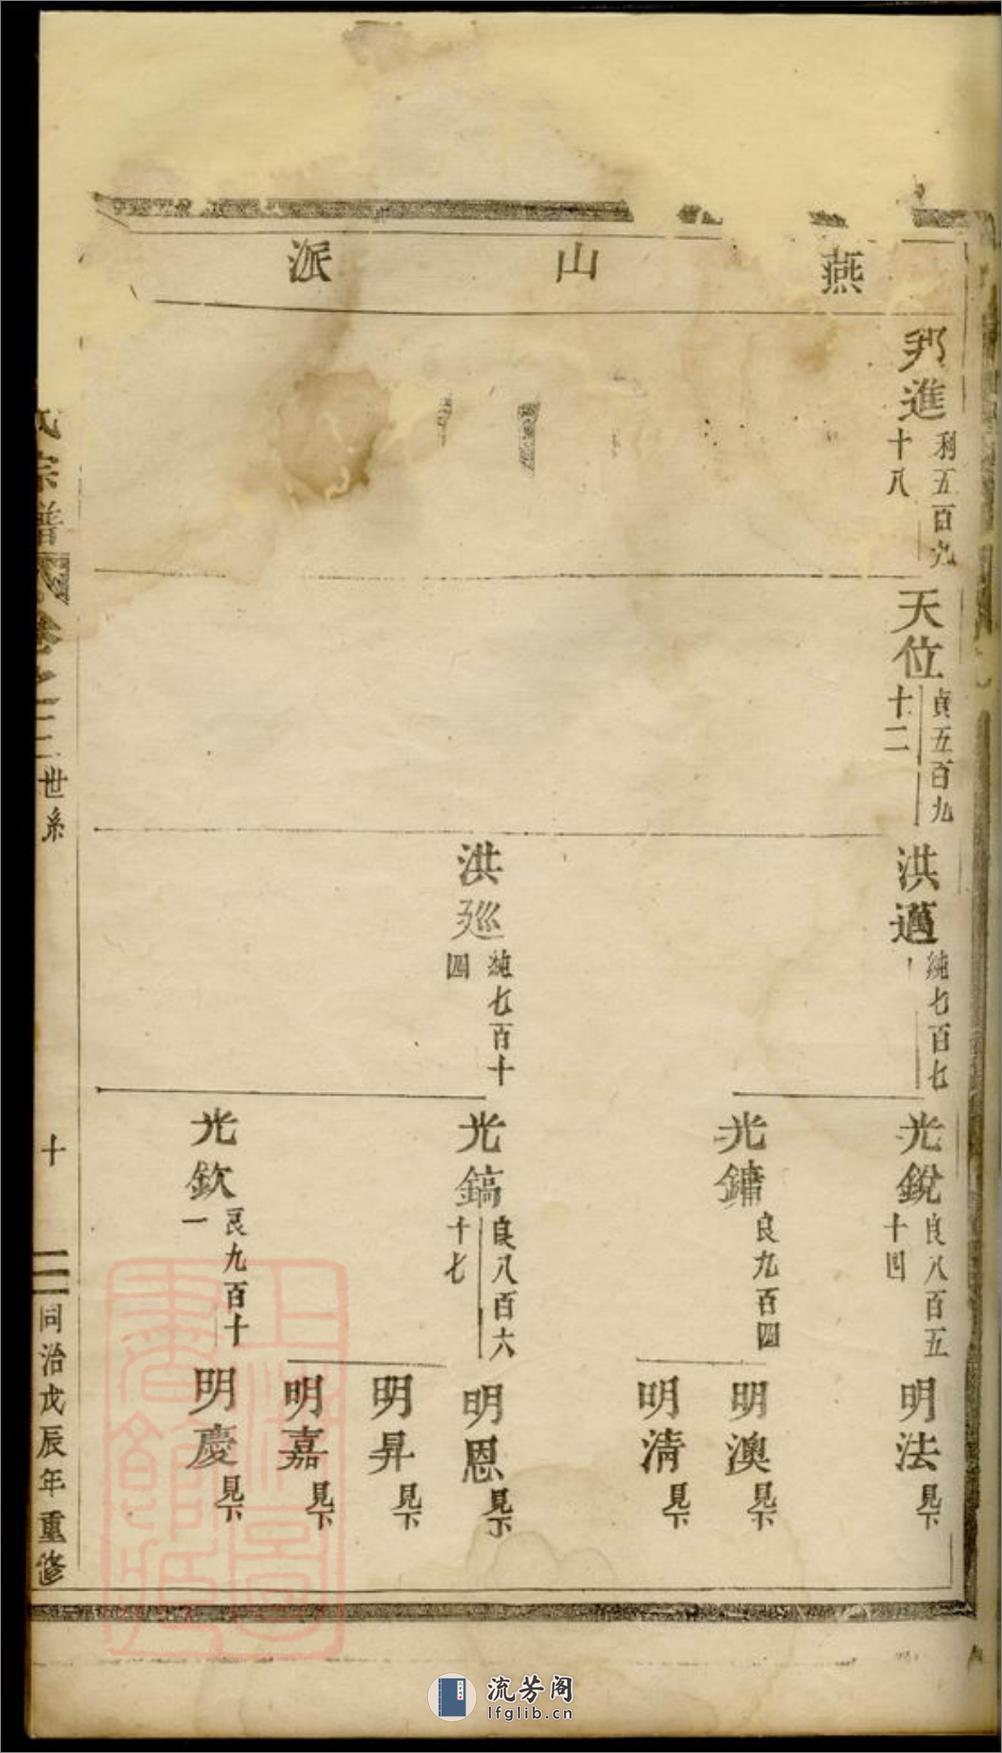 燕山派
邦進
利五百九
十八
天位
貞五百九
十二
洪邁
純七百七
光銳
良八百五
十四
明法
見下
光鏞
良九百四
明澳
見下
明清
見下
洪廵
純七百十
四
光鎬
良八百六
十七
明恩
見下
明昇
見下
明嘉
見下
光欽
良九百十
一
明慶
見下
氏宗譜
卷之二
世系
十
同治戊辰年重修
上海圖書館藏
流芳阁
lfglib.cn